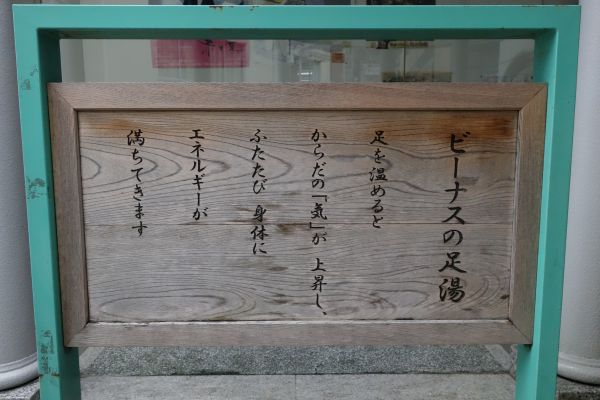 ビーナスの足湯
足を温めると
からだの「気」が 上昇し、
ふたたび 身体に
エネルギーが
満ちてきます